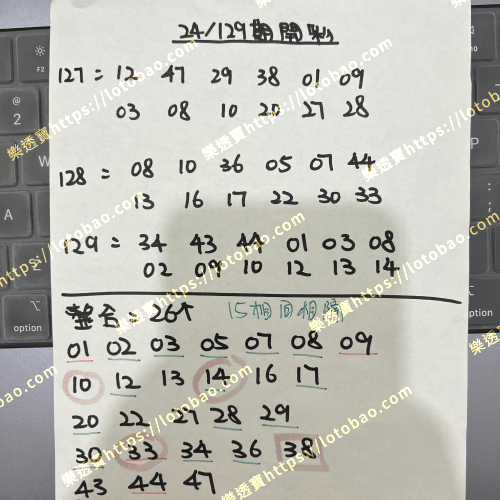 24/129期開彩
127 = 12 47 29 38 01 09
03 08 10 20 27 28
128 = 08 10 36 05 07 44
13 16 17 22 30 33
129 = 34 43 44 01 03 08
02 09 10 12 13 14
整合: 26个 15相同相隔
01 02 03 05 07 08 09
10 12 13 14 16 17
20 22 27 28 29
30 33 34 36 38
43 44 47
樂透寶https://lotobao.com
F2
@
2
W
A
Z
P
⌥
option
⌥
option